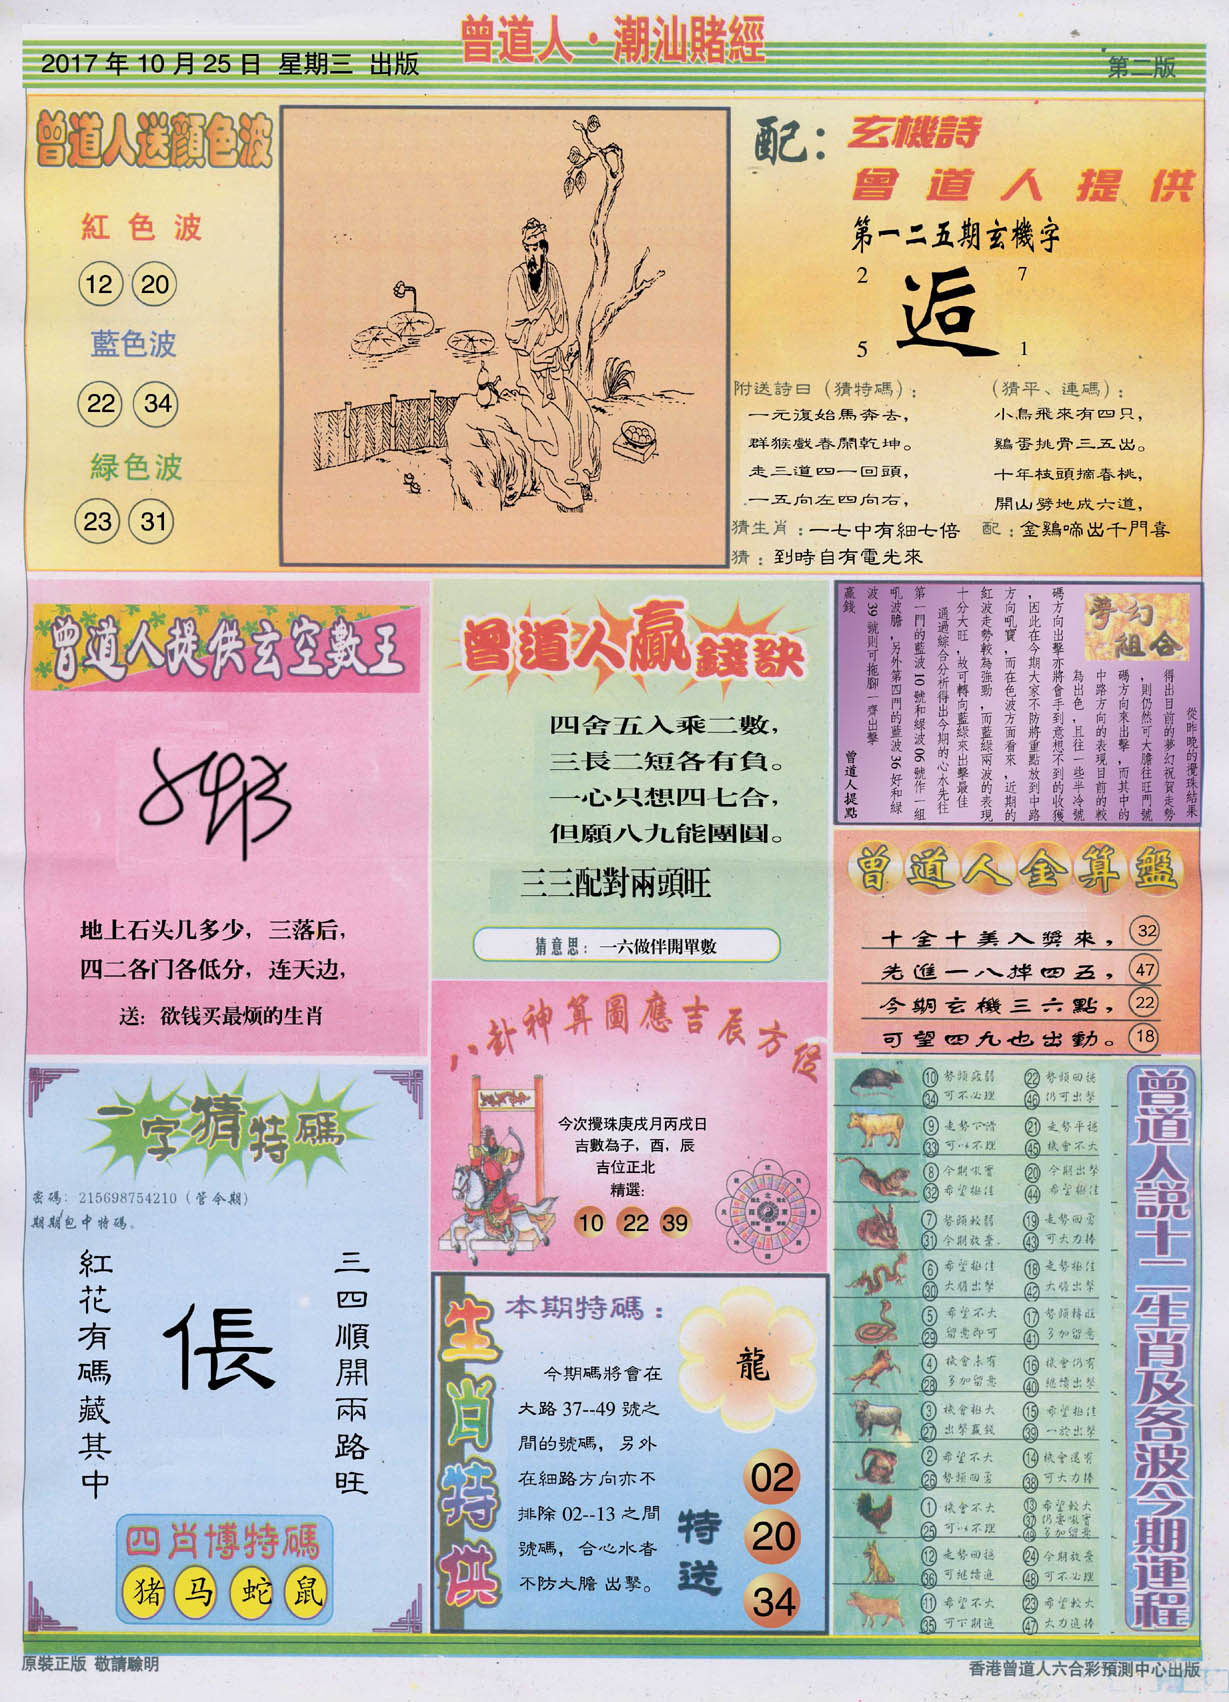 曾道人·潮汕賭經
2017 年 10 月 25 日 星期三 出版
第二版
曾道人送顏色波
紅色波
12 20
藍色波
22 34
緑色波
23 31
配：玄機詩
曾道人提供
第一二五期玄機字
2 7
逅
5 1
附送詩曰（猜特碼）：
一元復始馬奔去，
群猴戲春鬧乾坤。
走三道四一回頭，
一五向左四向右，
（猜平、連碼）：
小鳥飛來有四只，
鷄蛋挑骨三五出。
十年枝頭摘春桃，
開山劈地成六道，
猜生肖：一七中有細七倍
配：金鷄啼出千門喜
猜：到時自有電光來
曾道人提供玄空數王
地上石头几多少，三落后，
四二各门各低分，连天边，
送：欲钱买最烦的生肖
曾道人贏錢訣
四舍五入乘二數，
三長二短各有負。
一心只想四七合，
但願八九能團圓。
三三配對兩頭旺
猜意思：一六做伴開單數
夢幻
組合
從昨晚的攪珠結果
得出目前的夢幻祝賀走勢
，則仍然可大膽往旺門號
碼方向來出擊，而其中的
中路方向的表現目前的較
為出色，且往一些半冷號
碼方向出擊亦將會手到意想不到的收獲
，因此在今期大家不防將重點放到中路
方向吼寶，而在色波方面看來，近期的
紅波走勢較為強勁，而藍緑兩波的表現
十分大旺，故可轉向藍緑來出擊最佳
通過綜合分析得出今期的心水先往
第一門的藍波 10 號和緑波 06 號作一組
吼波膽，另外第四門的藍波 36 好和緑
波 39 號則可拖腳一齊出擊
贏錢
曾道人提點
曾道人金算盤
十全十美入獎來， 32
先進一八掉四五， 47
今期玄機三六點， 22
可望四九也出動。 18
八卦神算圖應吉辰方位
今次攪珠庚戌月丙戌日
吉數為子，酉，辰
吉位正北
精選：
10 22 39
一字猜特碼
密碼：215698754210（管今期）
期期包中特碼。
三四順開兩路旺
倀
紅花有碼藏其中
四肖博特碼
猪 马 蛇 鼠
生肖特供
本期特碼：
龍
今期碼將會在
大路 37--49 號之
間的號碼，另外
在細路方向亦不
排除 02--13 之間
號碼，合心水者
不防大膽 出擊。
特送
02
20
34
曾道人説十二生肖及各波今期運程
10 勢頭疲弱 22 勢頭回穩
34 可不必理 46 仍可出擊
9 走勢下滑 21 走勢平穩
33 可以不理 45 機會不大
8 今期吼寶 20 今期出擊
32 希望極佳 44 希望極佳
7 勢頭較弱 19 走勢回勇
31 今期放棄 43 可大力捧
6 希望極佳 18 走勢極佳
30 大膽出擊 42 大膽出擊
5 希望不大 17 勢頭轉旺
29 留意即可 41 多加留意
4 機會未有 16 機會仍有
28 多加留意 40 繼續出擊
3 機會極大 15 希望極佳
27 出擊贏錢 39 一於出擊
2 希望不大 14 機會還有
26 勢頭回勇 38 可大力捧
1 機會不大 13 希望較大
25 可以不理 37 仍要吼寶
49 多加留意
12 走勢回穩 24 今期放棄
36 可繼續追 48 可不必理
11 希望不大 23 希望較大
35 可下期追 47 大力追捧
原裝正版 敬請驗明
香港曾道人六合彩預測中心出版